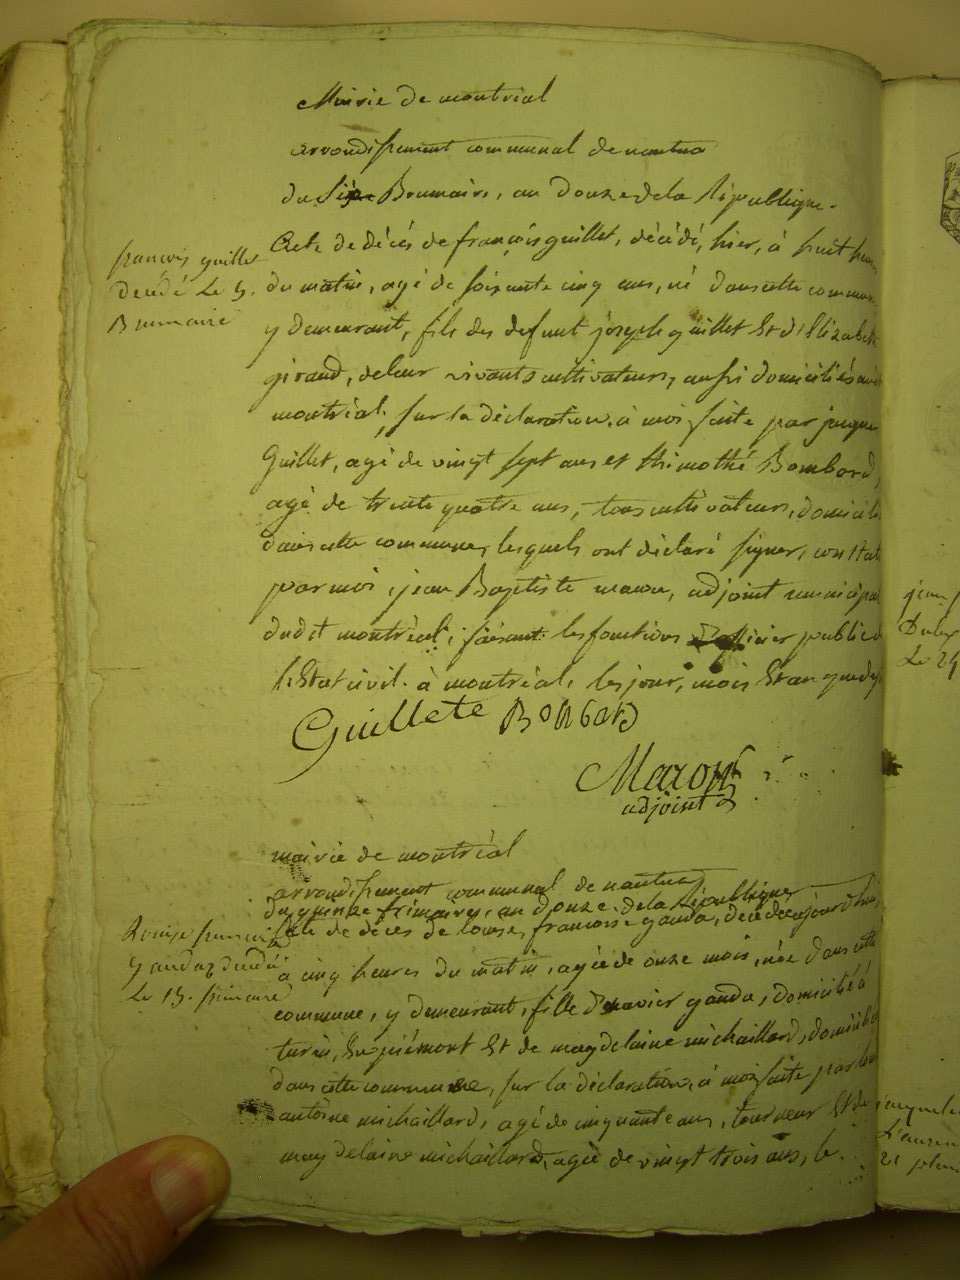 Mairie de montréal
arrondissement communal de nantua
du Six Brumaire, an douze de la République.
françois guillet
décédé Le 5.
Brumaire
Acte de décès de françois guillet, décédé, hier, à huit heures
du matin, agé de soixante cinq ans, né dans cette commune
y demeurant, fils des defunt joseph guillet Et d'Elizabeth
giraud, de leur vivants cultivateurs, aussi domiciliés
montréal, sur la déclaration, à moi faite par jacques
Guillet, agé de vingt sept ans et thimothé Bombard,
agé de trente quatre ans, tous cultivateurs, domicilié
dans cette commune, lesquels ont déclaré signer, constaté
par moi, jean Baptiste maron, adjoint municipal
dudit montréal, faisant les fonctions d'officier public de
l'Etat civil. à montréal, les jour, mois Et an que dessus
Guillete Bonbard
Maron
adjoint
mairie de montréal
arrondissement communal de nantua
du quinze frimaire, an douze de la République
Louise françoise
ganda décédée
Le 15. frimaire
Acte de décès de louise françoise ganda, décédée aujourd'hui,
à cinq heures du matin, agée de onze mois, née dans cette
commune, y demeurant, fille d'xavier ganda, domicilié à
turin, En piémont Et de magdelaine michaillard, domiciliée
dans cette commune, sur la déclaration, à moi faite par
antoine michaillard, agé de cinquante ans, tourneur Et de
magdelaine michaillard, agée de vingt trois ans, le
jean
Le 24
21